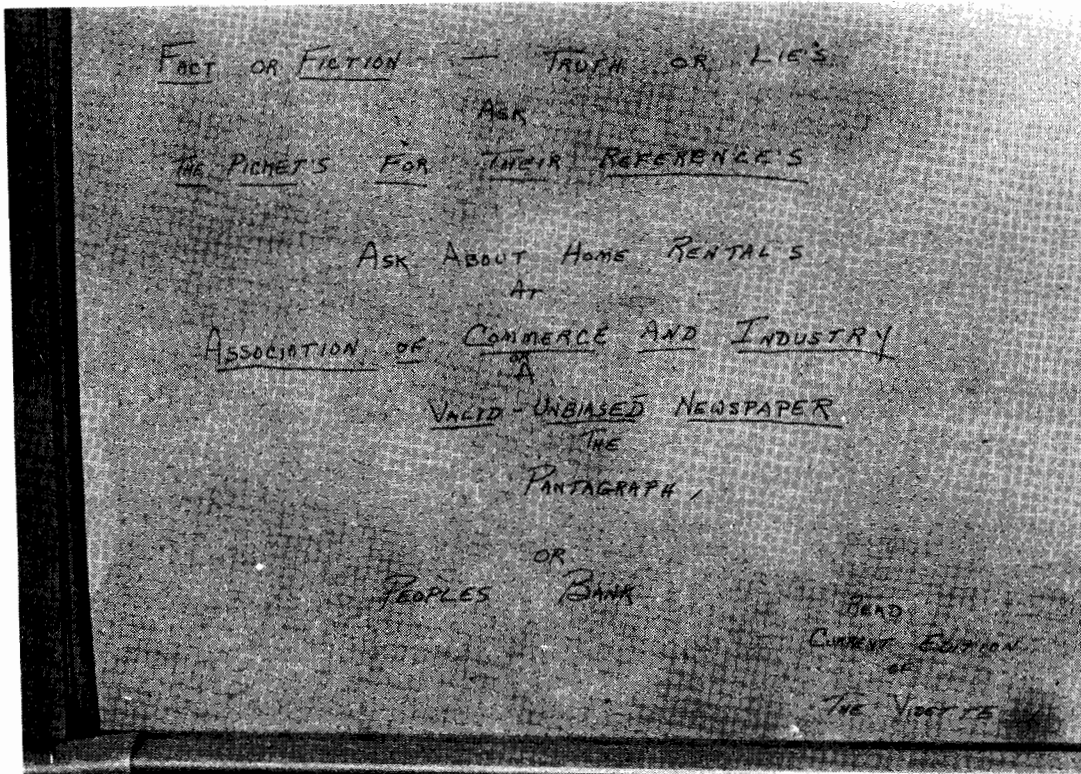 FACT OR FICTION — TRUTH OR LIE'S
ASK
THE PICKET'S FOR THEIR REFERENCE'S
ASK ABOUT HOME RENTAL'S
AT
ASSOCIATION OF COMMERCE AND INDUSTRY
OR
A
VALID-UNBIASED NEWSPAPER
THE
PANTAGRAPH,
OR
PEOPLES BANK
READ
CURRENT EDITION
OF
THE VIDETTE